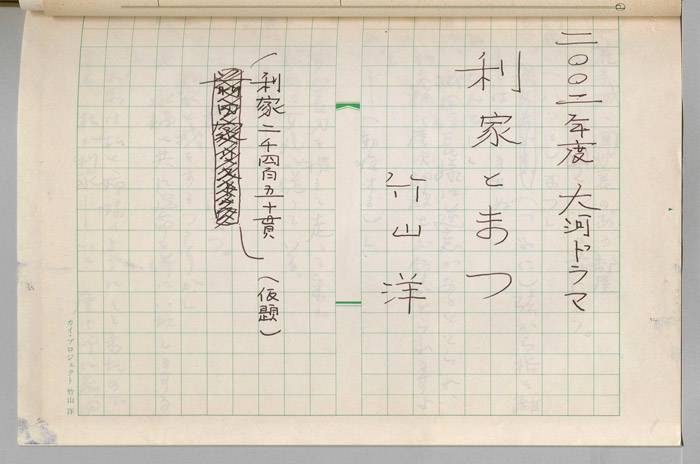 二〇〇二年度 大河ドラマ
利家とまつ
竹山 洋
利家二千四百五十貫 (仮題)
カイ・プロジェクト 竹山 洋